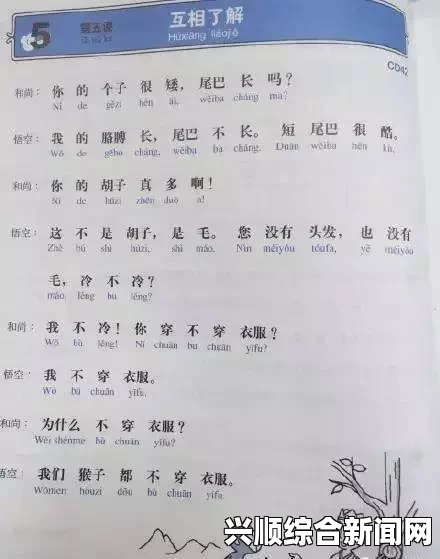 5 第五课 互相了解
Hùxiāng liáojiě
CD42
和尚: 你 的 个子 很 矮, 尾巴 长 吗?
Nǐ de gèzi hěn ǎi, wěiba cháng ma?
悟空: 我 的 胳膊 长, 尾巴 不 长。 短 尾巴 很 酷。
Wǒ de gēbo cháng, wěiba bù cháng. Duǎn wěiba hěn kù.
和尚: 你 的 胡子 真 多 啊!
Nǐ de húzi zhēn duō a!
悟空: 这 不 是 胡子, 是 毛。 您 没有 头发, 也 没有
Zhè bú shì húzi, shì máo. Nín méiyǒu tóufa, yě méiyǒu
毛, 冷 不 冷?
máo, lěng bu lěng?
和尚: 我 不 冷! 你 穿 不 穿 衣服?
Wǒ bù lěng! Nǐ chuān bu chuān yīfu?
悟空: 我 不 穿 衣服。
Wǒ bù chuān yīfu.
和尚: 为什么 不 穿 衣服?
Wèi shénme bù chuān yīfu?
悟空: 我们 猴子 都 不 穿 衣服。
Wǒmen hóuzi dōu bù chuān yīfu.
兴顺综合新闻网